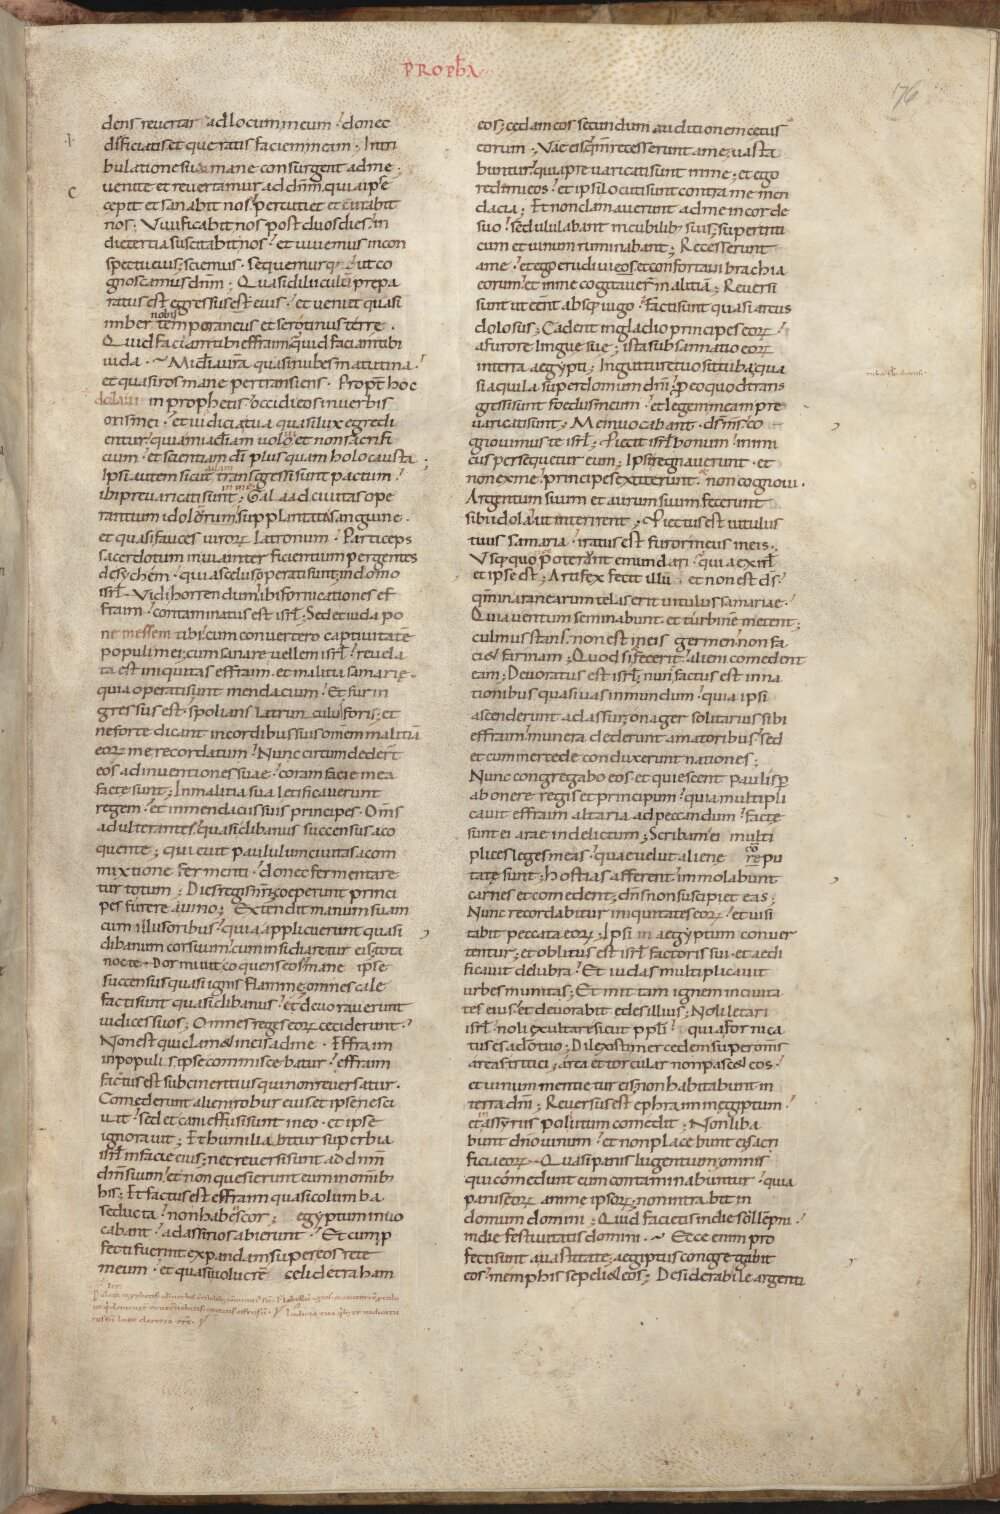 PROPhA
76
dens revertar ad locum meum donec
deficiatis et queratis faciem meam. In tri
bulatione sua mane consurgent ad me.
venite et revertamur ad dnm, quia ipse
cepit et sanabit nos, percutiet et curabit
nos; Vivificabit nos post duos dies, in
die tertia suscitabit nos, et vivemus in con
spectu eius; sciemus sequemurq; ut co
gnoscamus dnm; Quasi diluculum prepa
ratus est egressus eius, et veniet quasi
imber nobis temporaneus et serotinus terre.
Quid faciam tibi effraim, quid faciam tibi
iuda. Mia vra quasi nubes matutina,
et quasi ros mane pertransiens. Propt hoc
dolavi in prophetis, occidi eos in verbis
oris mei, et iudicia tua quasi lux egredi
entur, quia miam volui et non sacrifi
cium, et scientiam di plus quam holocausta;
Ipsi autem sicut adam transgressi sunt pactum,
ibi prevaricati sunt in me; Galaad civitas ope
rantium idolorum, supplantata sanguine.
et quasi fauces viror latronum. Particeps
sacerdotum in via interficientium pergentes
de sychem, quia scelus operati sunt; in domo
isrl vidi horrendum, ibi fornicationes ef
fraim, contaminatus est isrl; Sed et iuda po
ne messem tibi, cum convertero captivitate
populi mei; cum sanare vellem isrl, revela
ta est iniquitas effraim, et malitia samarie,
quia operati sunt mendacium, Et fur in
gressus est spolians, latrunculus foris; et
ne forte dicant in cordibus suis omem malitia
eor me recordatum, Nunc circumdedert
eos adinventiones suae, coram facie mea
facte sunt; In malitia sua letificaverunt
regem, et in mendaciis suis principes. Oms
adulterantes, quasi clibanus succensus a co
quente; quievit paululum civitas a com
mixtione fermenti, donec fermentare
tur totum; Dies regis nri, coeperunt princi
pes furere a vino; Extendit manum suam
cum illusoribus, quia applicuerunt quasi
clibanum cor suum, cum insidiaretur eis; tota
nocte dormivit coquens eos, mane ipse
succensus quasi ignis flamme; omnes cale
facti sunt quasi clibanus, et devoraverunt
iudices suos; Omnes reges eor ceciderunt,
Non est qui clamet in eis ad me. Effraim
in populis ipse commiscebatur, effraim
factus est subcinericius qui non reversatur.
Comederunt alieni robur eius, et ipse nesci
vit, sed et cani effusi sunt in eo, et ipse
ignoravit; Et humiliabitur superbia
isrl in facie eius; nec reversi sunt ad dnm
dm suum, et non quesierunt eum in omnib
his; Et factus est effraim quasi columba
seducta, non habens cor; egyptum invo
cabant, ad assirios abierunt, Et cum p
fecti fuerint, expandam super eos rete
meum, et quasi volucre celi detraham
eos; cedam eos secundum auditionem cetus
eorum. Vae eis, qm recesserunt a me, vasta
buntur, quia prevaricati sunt in me; et ego
redimi eos, et ipsi locuti sunt contra me men
dacia; Et non clamaverunt ad me in corde
suo, sed ululabant in cubilib suis; super triti
cum et vinum ruminabant; Recesserunt
a me, et ego erudivi eos, et confortavi brachia
eorum, et in me cogitaver malitia; Reversi
sunt ut eent absq; iugo, facti sunt quasi arcus
dolosus; Cadent in gladio principes eor
a furore lingue sue; ista subsannatio eor
in terra aegypti; In gutture tuo sit tuba, qua
si aquila super domum dni; p eo quod trans
gressi sunt foedus meum, et legem meam pre
varicati sunt; Me invocabant, ds ms co
gnovimus te isrl; Piecit isrl bonum, inimi
cus persequetur eum; Ipsi regnaverunt, et
non ex me, principes extiterunt, et non cognovi.
Argentum suum et aurum suum fecerunt
sibi idola, ut interirent; Piectus est vitulus
tuus samaria, iratus est furor meus in eis.
Usq; quo poterunt emundari, quia ex isrl
et ipse est; Artifex fecit illu et non est ds,
qm in aranearum telas erit vitulus samariae,
Quia ventum seminabunt, et turbine metent;
culmus stans, non est in eis germen, non fa
ciet farinam; Quod si fecerit, alieni comedent
eam; Devoratus est isrl; nunc factus est in na
tionibus quasi vas inmundum, quia ipsi
ascenderunt ad assur, onager solitarius sibi
effraim munera dederunt amatoribus, sed
et cum mercede conduxerunt nationes;
Nunc congregabo eos, et quiescent paulisp
ab onere regis et principum, quia multipli
cavit effraim altaria ad peccandum, facte
sunt ei arae in delictum; Scribam ei multi
plices leges meas, quae velut aliene repu
tate sunt; hostias afferent, immolabunt
carnes et comedent; dns non suscipiet eas;
Nunc recordabitur iniquitates eor, et visi
tabit peccata eor. Ipsi in aegyptum conver
tentur; et oblitus est isrl factoris sui, et aedi
ficavit delubra, Et iudas multiplicavit
urbes munitas; Et mittam ignem in civita
tes eius, et devorabit edes illius; Noli letari
isrl, noli exultare sicut ppli, quia fornica
tus es a do tuo; Dilexisti mercedem super oms
areas tritici; area et torcular non pascet eos,
et vinum mentietur eis; non habitabunt in
terra dni; Reversus est ephraim in egiptum,
et in assyrus polutum comedit. Non liba
bunt dno vinum, et non placebunt ei; sacri
ficia eor. Quasi panis lugentium, omnis
qui comedunt eum contaminabuntur, quia
panis eor anime ipsor; non intrabit in
domum domini; Quid facietis in die sollepni,
in die festivitatis domini. Ecce enim pro
fecti sunt a vastitate, aegiptus congregabit
eos, memphis sepeliet eos; Desiderabile argenti